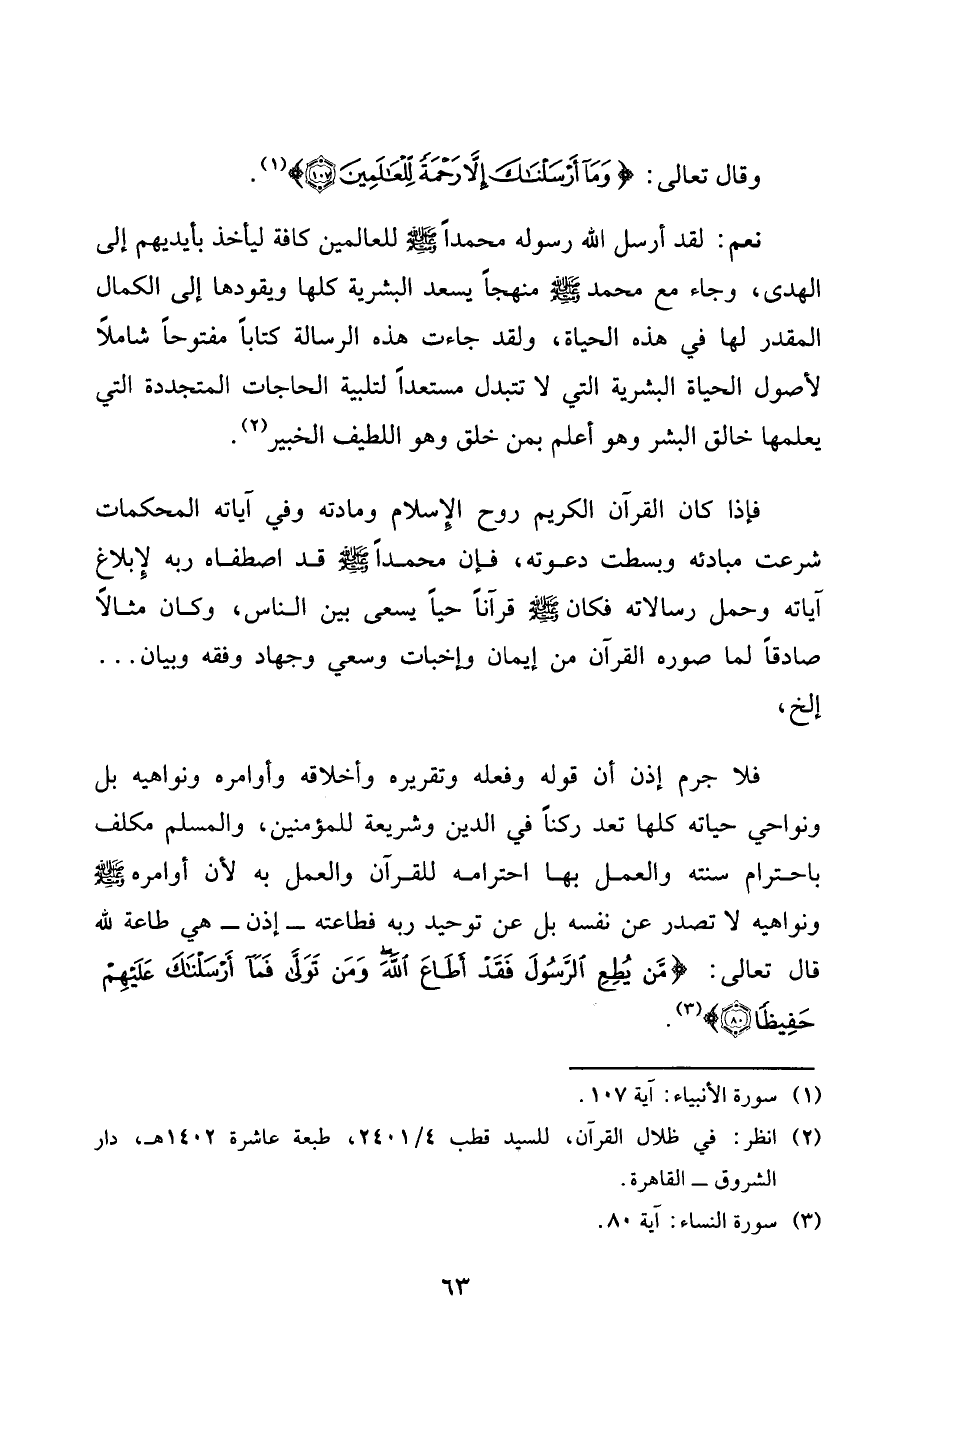 وقال تعالى: ﴿ وَمَآ أَرْسَلْنَٰكَ إِلَّا رَحْمَةً لِّلْعَٰلَمِينَ ۝١٠٧﴾(١).
نعم: لقد أرسل الله رسوله محمداً ﷺ للعالمين كافة ليأخذ بأيديهم إلى
الهدى، وجاء مع محمد ﷺ منهجاً يسعد البشرية كلها ويقودها إلى الكمال
المقدر لها في هذه الحياة، ولقد جاءت هذه الرسالة كتاباً مفتوحاً شاملاً
لأصول الحياة البشرية التي لا تتبدل مستعداً لتلبية الحاجات المتجددة التي
يعلمها خالق البشر وهو أعلم بمن خلق وهو اللطيف الخبير(٢).
فإذا كان القرآن الكريم روح الإسلام ومادته وفي آياته المحكمات
شرعت مبادئه وبسطت دعوته، فإن محمداً ﷺ قد اصطفاه ربه لإبلاغ
آياته وحمل رسالاته فكان ﷺ قرآناً حياً يسعى بين الناس، وكان مثالاً
صادقاً لما صوره القرآن من إيمان وإخبات وسعي وجهاد وفقه وبيان...
إلخ،
فلا جرم إذن أن قوله وفعله وتقريره وأخلاقه وأوامره ونواهيه بل
ونواحي حياته كلها تعد ركناً في الدين وشريعة للمؤمنين، والمسلم مكلف
باحترام سنته والعمل بها احترامه للقرآن والعمل به لأن أوامره ﷺ
ونواهيه لا تصدر عن نفسه بل عن توحيد ربه فطاعته ـ إذن ـ هي طاعة لله
قال تعالى: ﴿ مَّن يُطِعِ ٱلرَّسُولَ فَقَدْ أَطَاعَ ٱللَّهَ ۖ وَمَن تَوَلَّىٰ فَمَآ أَرْسَلْنَٰكَ عَلَيْهِمْ
حَفِيظًا ۝٨٠﴾(٣).
(١) سورة الأنبياء: آية ١٠٧.
(٢) انظر: في ظلال القرآن، للسيد قطب ٢٤٠١/٤، طبعة عاشرة ١٤٠٢هـ، دار
الشروق ـ القاهرة.
(٣) سورة النساء: آية ٨٠.
٦٣